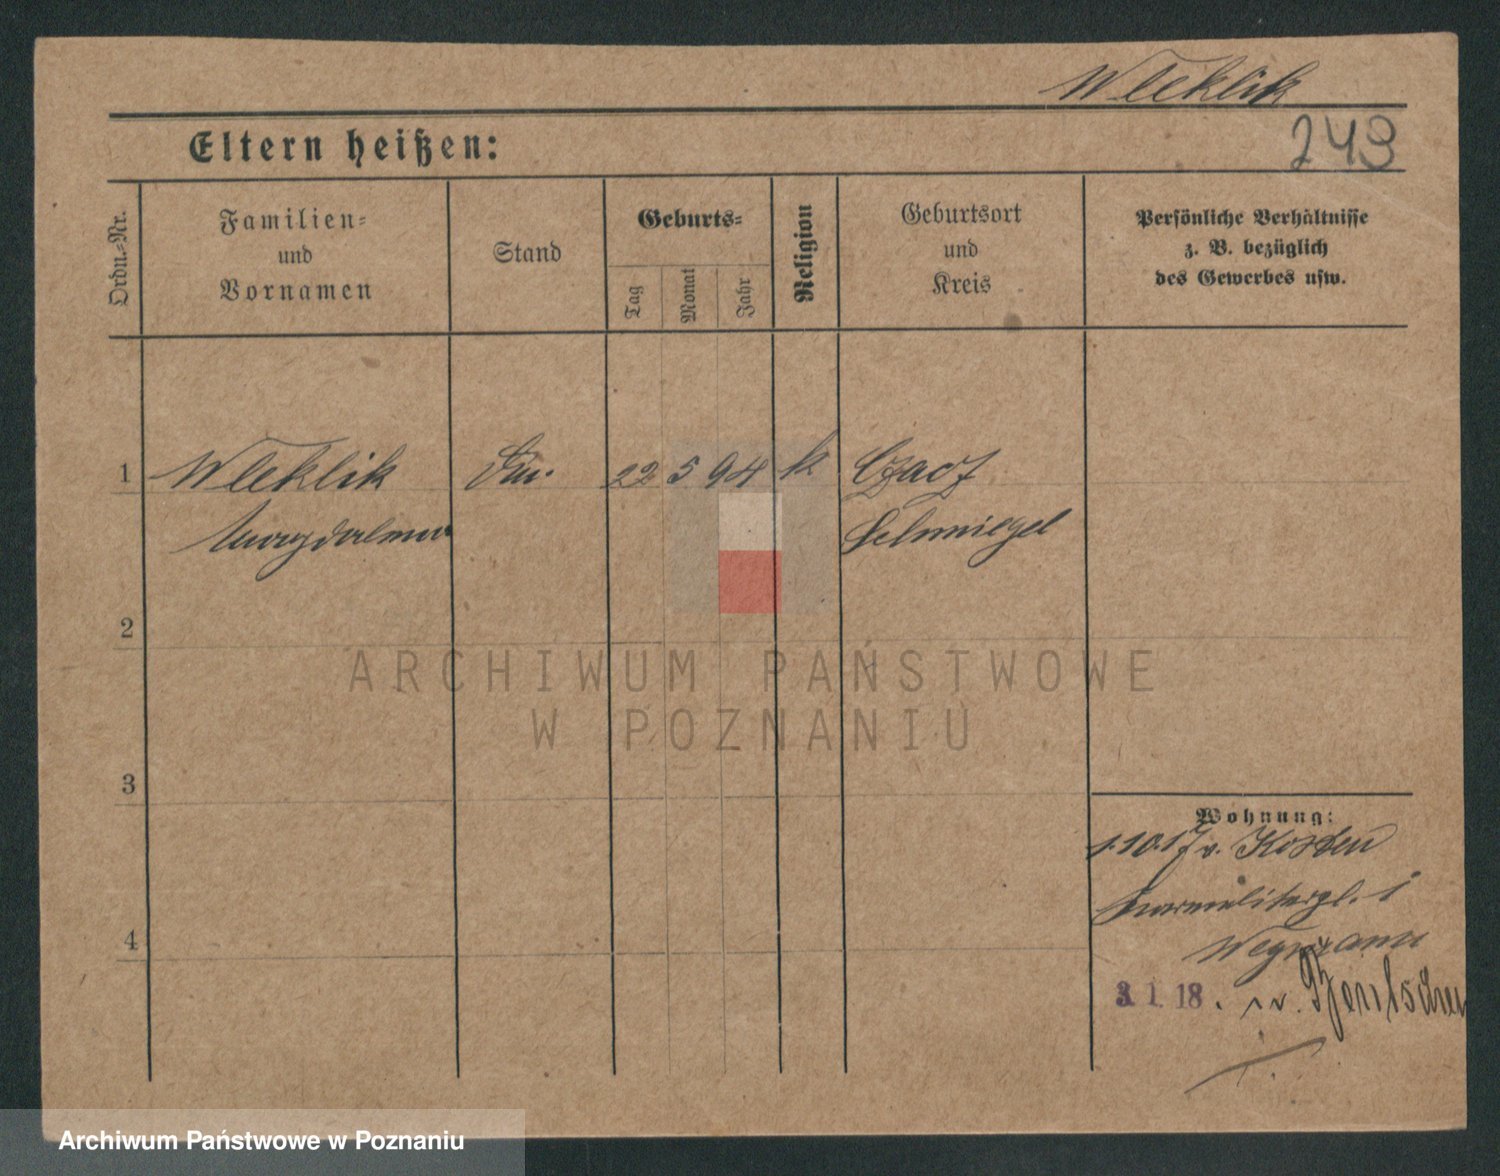 Wleklik
243
Eltern heißen:
Ordn.-Nr.
Familien-
und
Vornamen
Stand
Geburts-
Tag
Monat
Jahr
Religion
Geburtsort
und
Kreis
Persönliche Verhältnisse
z. B. bezüglich
des Gewerbes usw.
1
Wleklik
22 5 94 k
Czacz
Magdalena
Schmiegel
2
ARCHIWUM PAŃSTWOWE
W POZNANIU
3
4
Wohnung:
1.10.17 v. Kosten
Karmeliterpl. 1
3. 1. 18. n. v. Bentschen
Archiwum Państwowe w Poznaniu